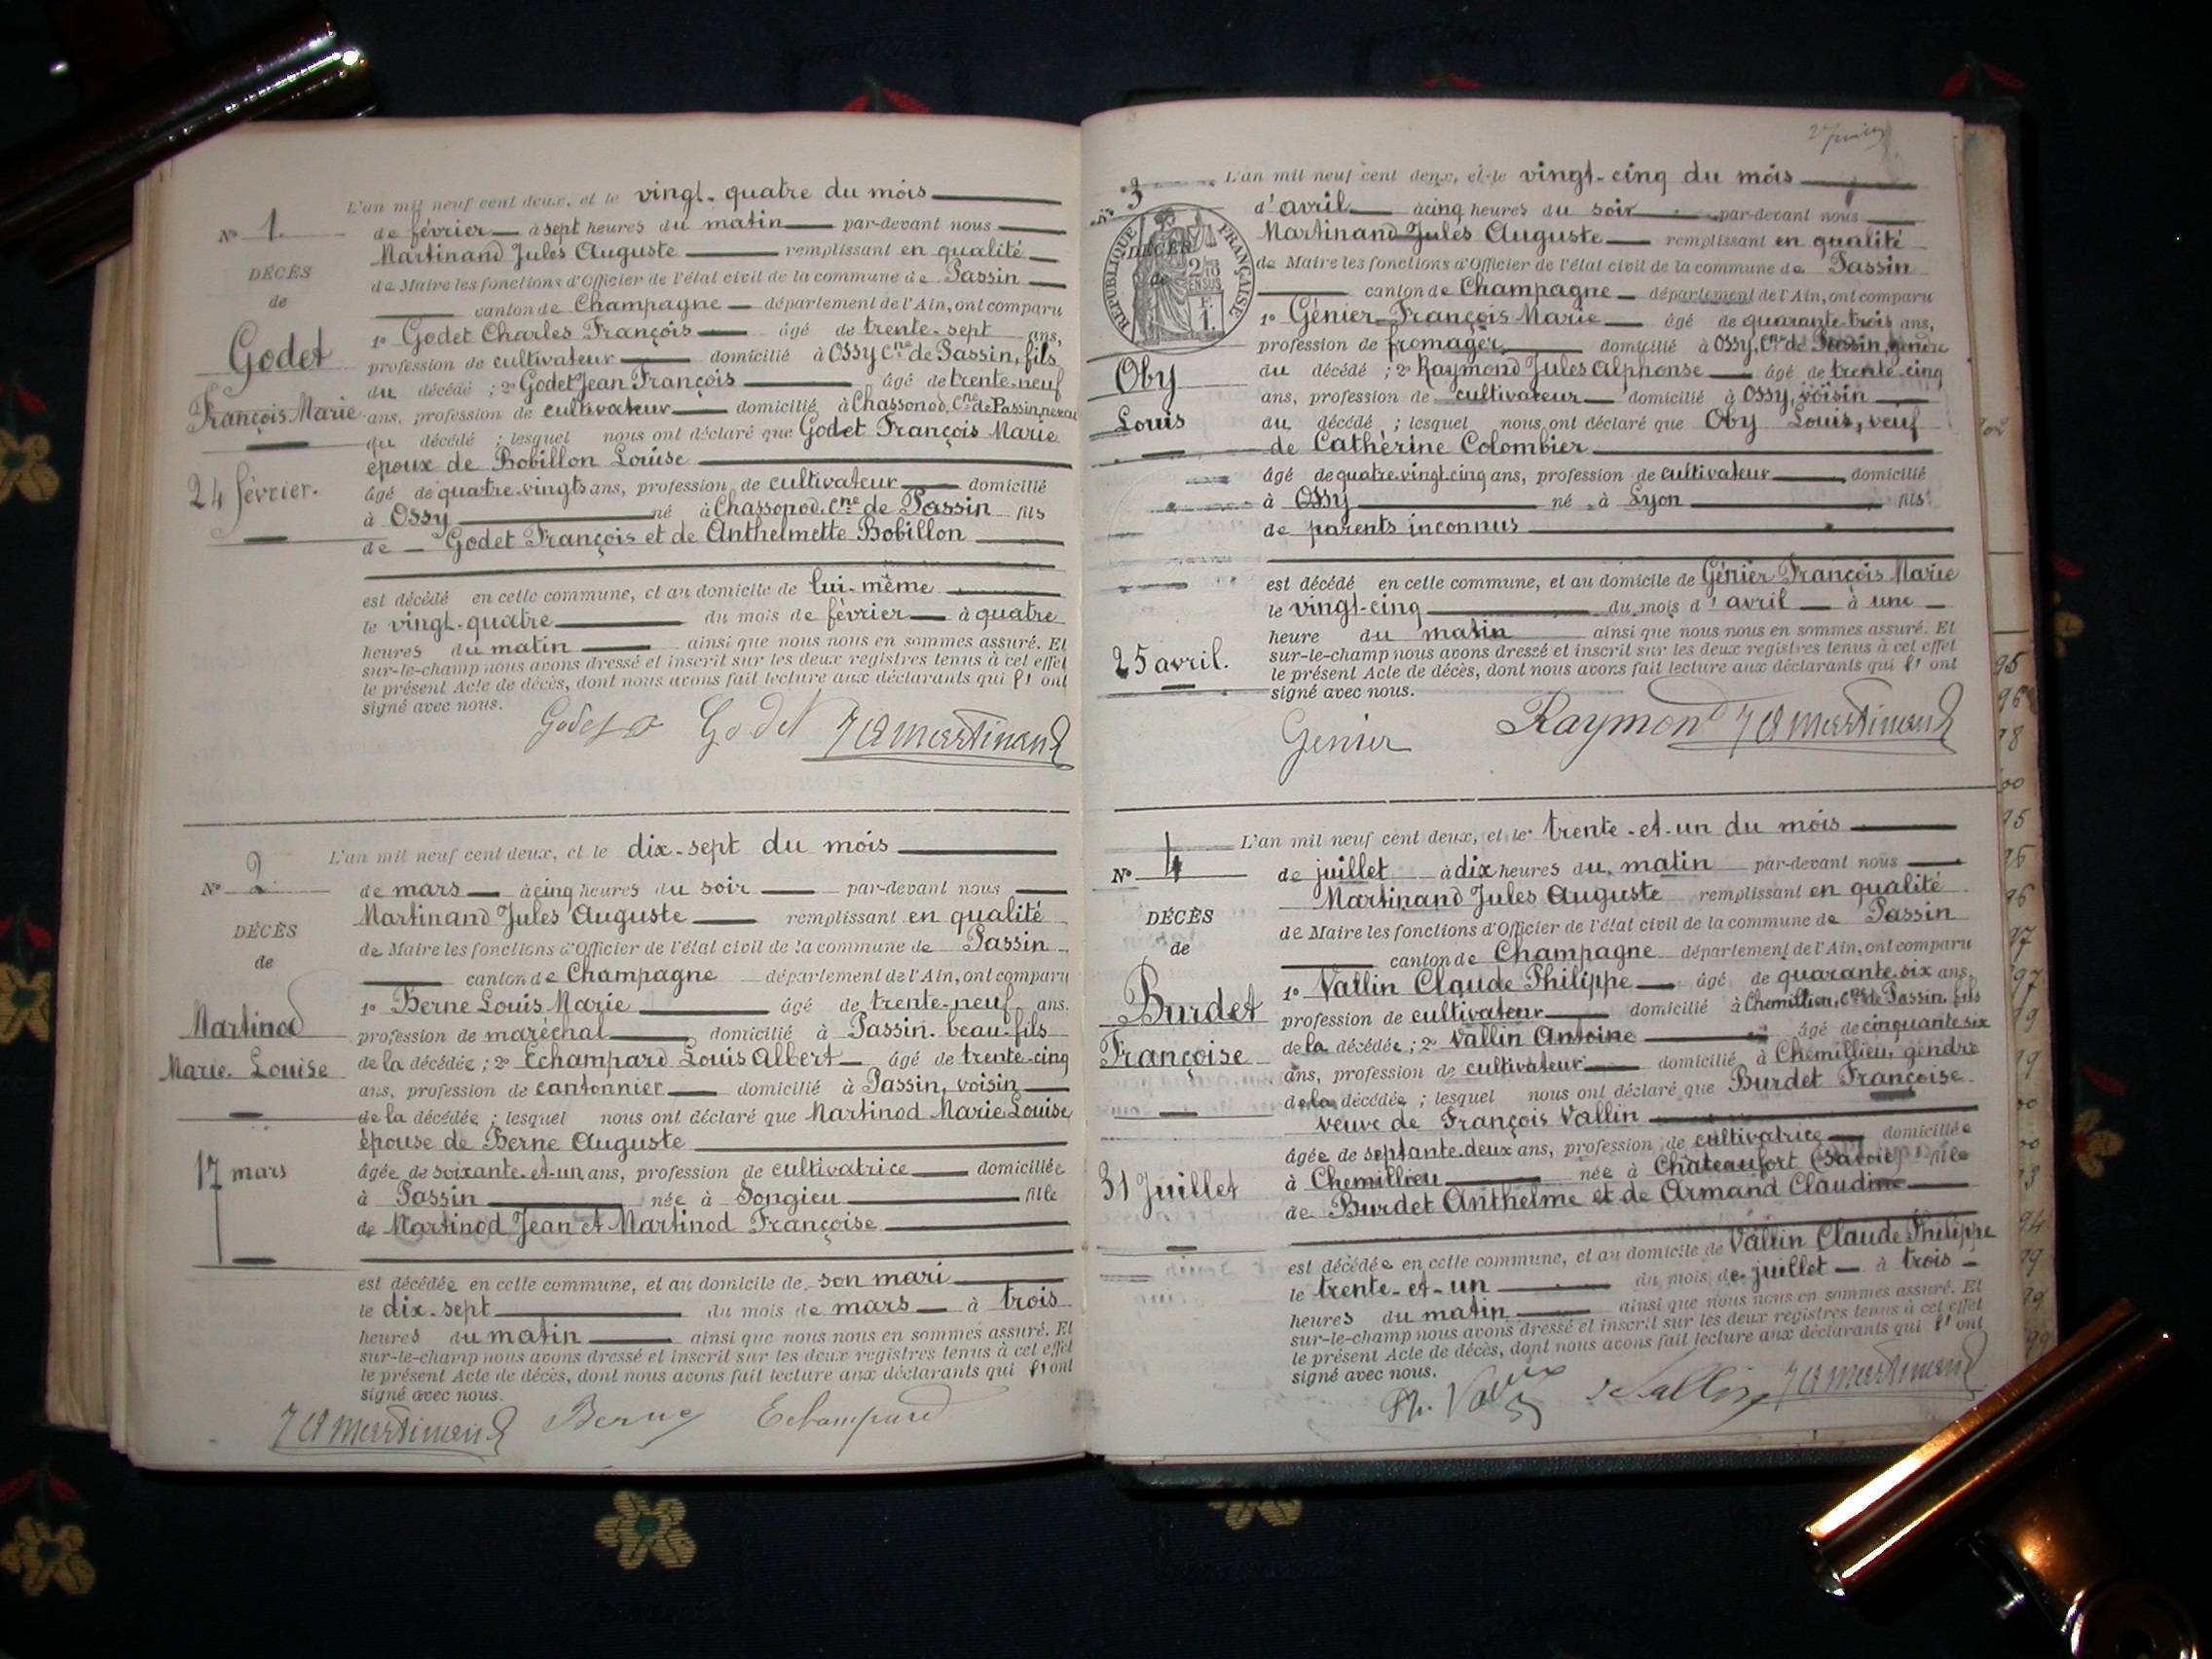 L'an mil neuf cent deux, et le vingt-quatre du mois
N° 1.
de février à sept heures du matin par-devant nous
Martinand Jules Auguste remplissant en qualité
DÉCÈS
de Maire les fonctions d'Officier de l'état civil de la commune de Passin
de
canton de Champagne département de l'Ain, ont comparu
1° Godet Charles François âgé de trente-sept ans,
Godet
profession de cultivateur domicilié à Ossy Cne de Passin, fils
du décédé ; 2° Godet Jean François âgé de trente-neuf
François Marie
ans, profession de cultivateur domicilié à Chassonod, Cne de Passin, neveu
du décédé ; lesquel nous ont déclaré que Godet François Marie
époux de Bobillon Louise
24 février.
âgé de quatre-vingts ans, profession de cultivateur domicilié
à Ossy né à Chassonod, Cne de Passin fils
de Godet François et de Anthelmette Bobillon
est décédé en cette commune, et au domicile de lui-même
le vingt-quatre du mois de février à quatre
heures du matin ainsi que nous nous en sommes assuré. Et
sur-le-champ nous avons dressé et inscrit sur les deux registres tenus à cet effet
le présent Acte de décès, dont nous avons fait lecture aux déclarants qui l'ont
signé avec nous.
Godet Godet J A Martinand
L'an mil neuf cent deux, et le dix-sept du mois
N° 2
de mars à cinq heures du soir par-devant nous
Martinand Jules Auguste remplissant en qualité
DÉCÈS
de Maire les fonctions d'Officier de l'état civil de la commune de Passin
de
canton de Champagne département de l'Ain, ont comparu
1° Berne Louis Marie âgé de trente-neuf ans.
Martinod
profession de maréchal domicilié à Passin. beau-fils
Marie Louise
de la décédée ; 2° Echampard Louis Albert âgé de trente-cinq
ans, profession de cantonnier domicilié à Passin, voisin
de la décédée ; lesquel nous ont déclaré que Martinod Marie Louise
épouse de Berne Auguste
17 mars
âgée de soixante-et-un ans, profession de cultivatrice domiciliée
à Passin née à Songieu fille
de Martinod Jean et Martinod Françoise
est décédée en cette commune, et au domicile de son mari
le dix-sept du mois de mars à trois
heures du matin ainsi que nous nous en sommes assuré. Et
sur-le-champ nous avons dressé et inscrit sur les deux registres tenus à cet effet
le présent Acte de décès, dont nous avons fait lecture aux déclarants qui l'ont
signé avec nous.
J A Martinand Berne Echampard
L'an mil neuf cent deux, et le vingt-cinq du mois
N° 3
d'avril à cinq heures du soir par-devant nous
Martinand Jules Auguste remplissant en qualité
RÉPUBLIQUE FRANÇAISE
DÉCÈS
de Maire les fonctions d'Officier de l'état civil de la commune de Passin
canton de Champagne département de l'Ain, ont comparu
1° Génier François Marie âgé de quarante-trois ans,
profession de fromager domicilié à Ossy, Cne de Passin, gendre
Oby
du décédé ; 2° Raymond Jules Alphonse âgé de trente-cinq
ans, profession de cultivateur domicilié à Ossy, voisin
Louis
du décédé ; lesquel nous ont déclaré que Oby Louis, veuf
de Cathèrine Colombier
âgé de quatre-vingt-cinq ans, profession de cultivateur domicilié
à Ossy né à Lyon fils
de parents inconnus
est décédé en cette commune, et au domicile de Génier François Marie
le vingt-cinq du mois d'avril à une
heure du matin ainsi que nous nous en sommes assuré. Et
25 avril.
sur-le-champ nous avons dressé et inscrit sur les deux registres tenus à cet effet
le présent Acte de décès, dont nous avons fait lecture aux déclarants qui l'ont
signé avec nous.
Genier Raymond J A Martinand
L'an mil neuf cent deux, et le trente-et-un du mois
N° 4
de juillet à dix heures du matin par-devant nous
Martinand Jules Auguste remplissant en qualité
DÉCÈS
de Maire les fonctions d'Officier de l'état civil de la commune de Passin
de
canton de Champagne département de l'Ain, ont comparu
1° Vallin Claude Philippe âgé de quarante-six ans,
Burdet
profession de cultivateur domicilié à Chemillieu, Cne de Passin, fils
de la décédée ; 2° Vallin Antoine âgé de cinquante-six
Françoise
ans, profession de cultivateur domicilié à Chemillieu, gendre
de la décédée ; lesquel nous ont déclaré que Burdet Françoise
veuve de François Vallin
âgée de septante-deux ans, profession de cultivatrice domiciliée
31 Juillet
à Chemillieu née à Chateaufort (Savoie) fille
de Burdet Anthelme et de Armand Claudine
est décédée en cette commune, et au domicile de Vallin Claude Philippe
le trente-et-un du mois de juillet à trois
heures du matin ainsi que nous nous en sommes assuré. Et
sur-le-champ nous avons dressé et inscrit sur les deux registres tenus à cet effet
le présent Acte de décès, dont nous avons fait lecture aux déclarants qui l'ont
signé avec nous.
Ph. Vallin Vallin J A Martinand